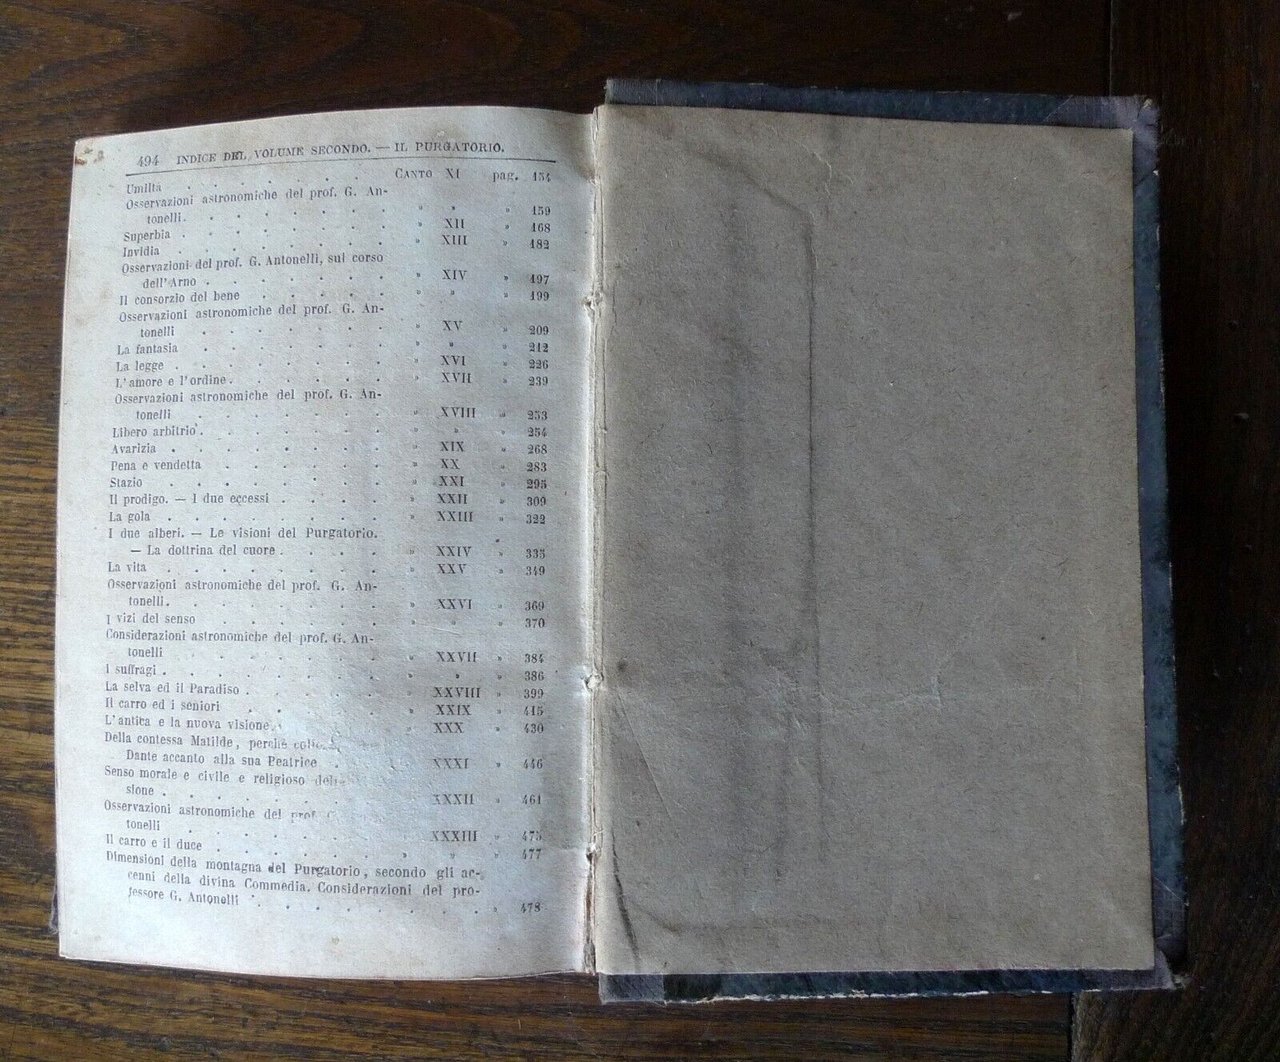 494 INDICE DEL VOLUME SECONDO. — IL PURGATORIO.
Umiltà . . . . . . . CANTO XI pag. 154
Osservazioni astronomiche del prof. G. An-
tonelli. . . . . . . . » » » 159
Superbia . . . . . . . » XII » 168
Invidia . . . . . . . » XIII » 182
Osservazioni del prof. G. Antonelli, sul corso
dell'Arno . . . . . . . » XIV » 197
Il consorzio del bene . . . . . » » » 199
Osservazioni astronomiche del prof. G. An-
tonelli . . . . . . . » XV » 209
La fantasia . . . . . . . » » » 212
La legge . . . . . . . . » XVI » 226
L'amore e l'ordine . . . . . . » XVII » 239
Osservazioni astronomiche del prof. G. An-
tonelli . . . . . . . » XVIII » 253
Libero arbitrio . . . . . . . » » » 254
Avarizia . . . . . . . . » XIX » 268
Pena e vendetta . . . . . . » XX » 283
Stazio . . . . . . . . » XXI » 295
Il prodigo. — I due eccessi . . . . » XXII » 309
La gola . . . . . . . . » XXIII » 322
I due alberi. — Le visioni del Purgatorio.
— La dottrina del cuore . . . . » XXIV » 335
La vita . . . . . . . . » XXV » 349
Osservazioni astronomiche del prof. G. An-
tonelli. . . . . . . . » XXVI » 369
I vizi del senso . . . . . . » » » 370
Considerazioni astronomiche del prof. G. An-
tonelli . . . . . . . » XXVII » 384
I suffragi . . . . . . . . » » » 386
La selva ed il Paradiso . . . . . » XXVIII » 399
Il carro ed i seniori . . . . . » XXIX » 415
L'antica e la nuova visione . . . . » XXX » 430
Della contessa Matilde, perchè
Dante accanto alla sua Beatrice . XXXI » 446
Senso morale e civile e religioso
sione . . . . . . . XXXII » 461
Osservazioni astronomiche del prof.
tonelli . . . . . . . XXXIII » 475
Il carro e il duce . . . . . . » » » 477
Dimensioni della montagna del Purgatorio, secondo gli ac-
cenni della divina Commedia. Considerazioni del pro-
fessore G. Antonelli . . . . . . . . » 478